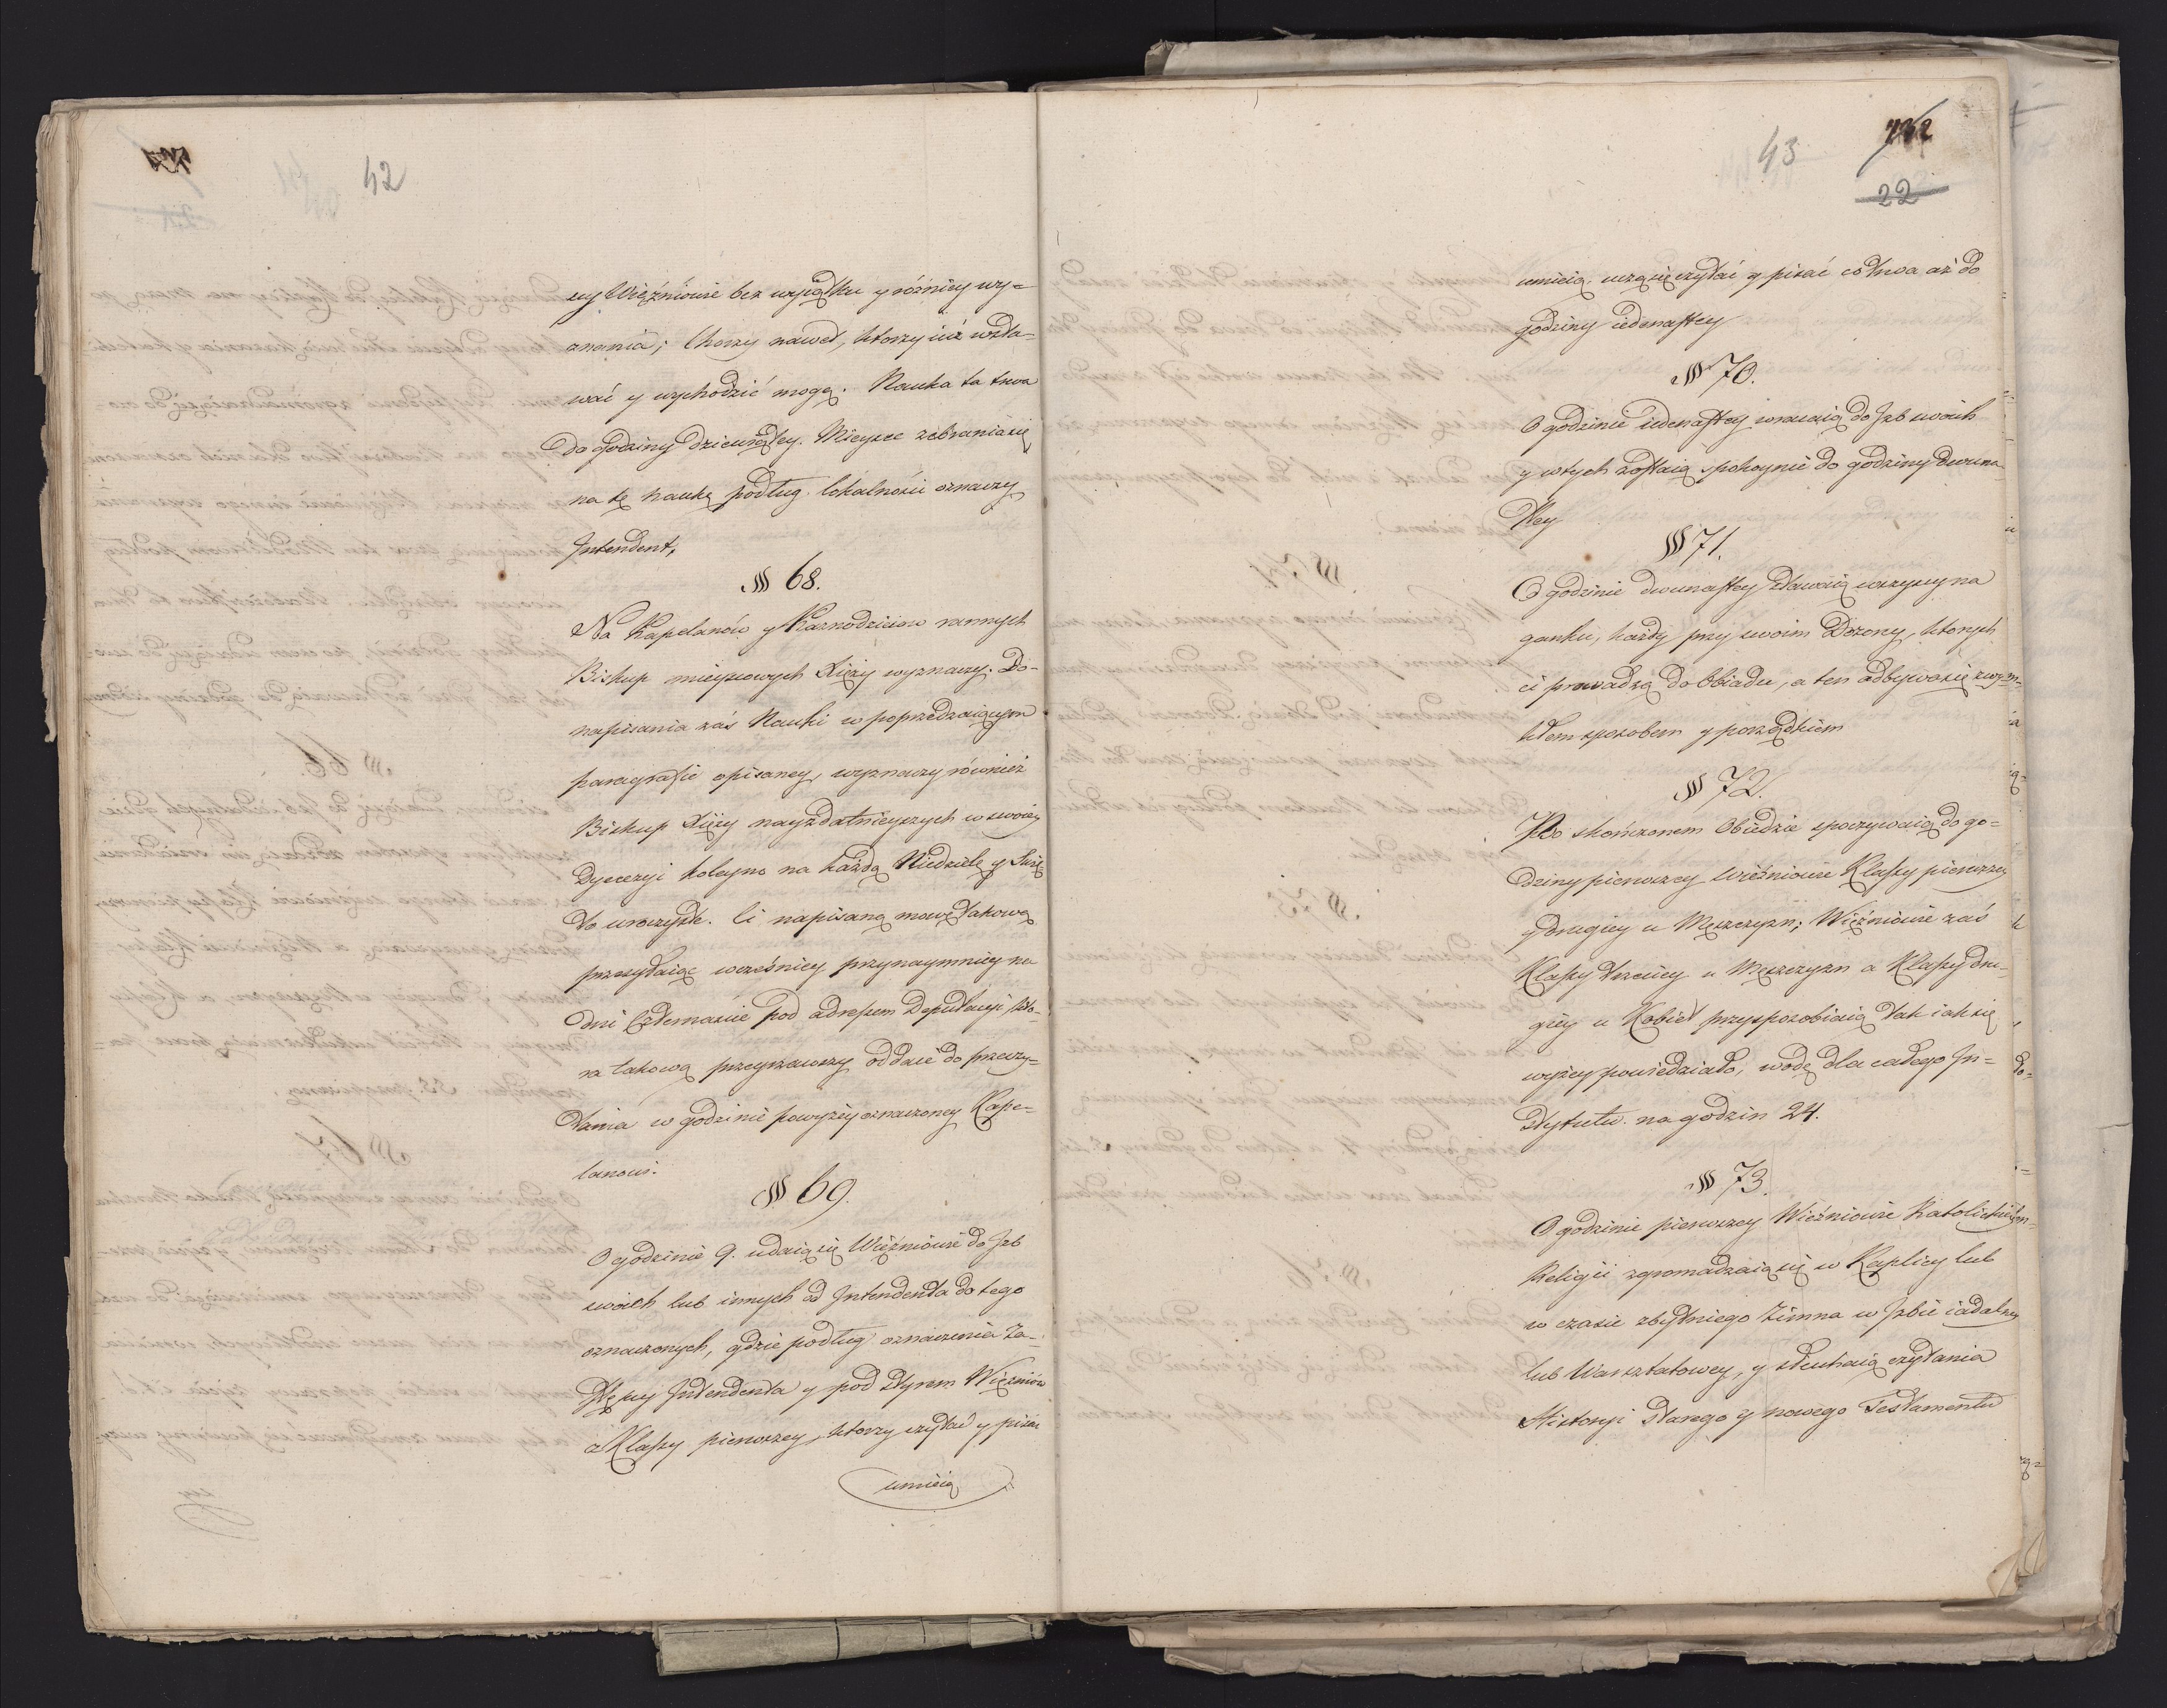 42
cy Więźniowie bez wyiątku y różnicy wy=
znania; Chorzy nawet, ktorzy iuż wsta=
wać y wychodzić mogą. Nauka ta trwa
do godziny dziewiątey. Mieysce zebrania się
na tę naukę podług lokalności oznaczy
Intendent,
§ 68.
Na Kapelanów y Kaznodzieiow rannych
Biskup mieyscowych Xięży wyznaczy. Do=
napisania zaś Nauki w poprzedzaiącym
paragrafie opisaney, wyznaczy również
Biskup Xięży nayzdatnieyszych w swoiey
Dyecezyi koleyno na każdą Niedzielę y Świę
to uroczyste. Ci napisaną mowę takową
przesyłaią wcześniey przynaymniey na
dni Czternaście pod adresem Deputacyi któ=
ra takową przeyrzawszy oddaie do przeczy=
tania w godzinie powyżey oznaczoney Kape=
lanowi.
§ 69.
O godzinie 9. udaią się Więźniowie do Izb
swoich lub innych od Intendenta do tego
oznaczonych, gdzie podług oznaczenia Za=
stępcy Intendenta y pod Styrem Więźniów
a Klassy pierwszey, ktorzy czytać y pisać
umieią
43
22
umieią, uczą się czytać y pisać co trwa aż do
godziny iedenastey
§ 70.
O godzinie iedenastey wracaią do Izb swoich
y w tych zostaią spokoynie do godziny dwuna=
stey
§ 71.
O godzinie dwunastey stawaią wszyscy na
ganku, każdy przy swoim Dozorcy, ktorych
ci prowadzą do Obiadu, a ten odbywa się zwy=
kłem sposobem y porządkiem
§ 72.
Po skończonem Obiedzie spoczywaią do go=
dziny pierwszey Wieźniowie Klassy pierwszey
y drugiey u Męszczyzn; Więźniowie zaś
Klassy trzeciey u Męszczyzn a Klassy dru=
giey u Kobiet przysposobiaią tak iak się
wyżey powiedziało, wodę dla całego In=
stytutu na godzin 24.
§ 73.
O godzinie pierwszey Wieźniowie Katolickiey
Religii zgromadzaią się w Kaplicy lub
w czasie zbytniego Zimna w Izbie iadalney
lub Warsztatowey, y słuchaią czytania
Historyi Starego y nowego Testamentu